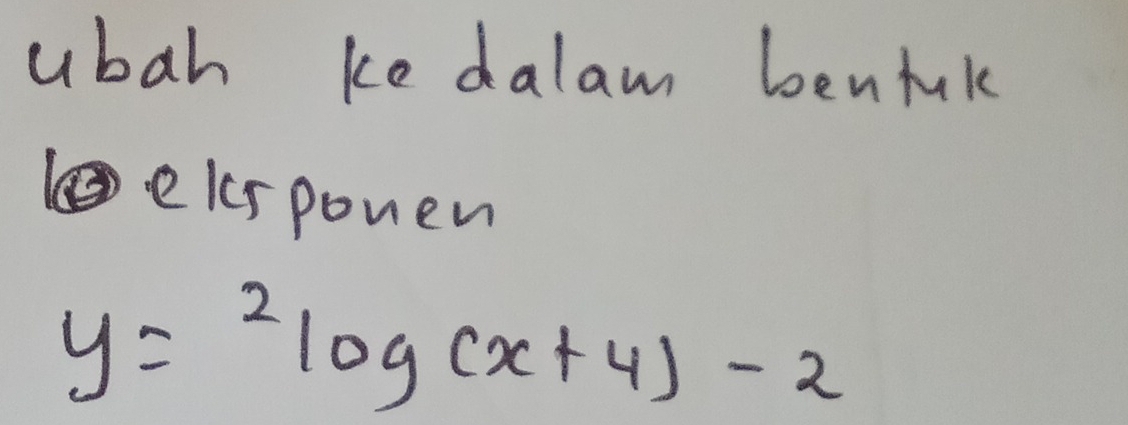 ubah ke dalam bentuk
eksponen
y = ²log (x+4) - 2